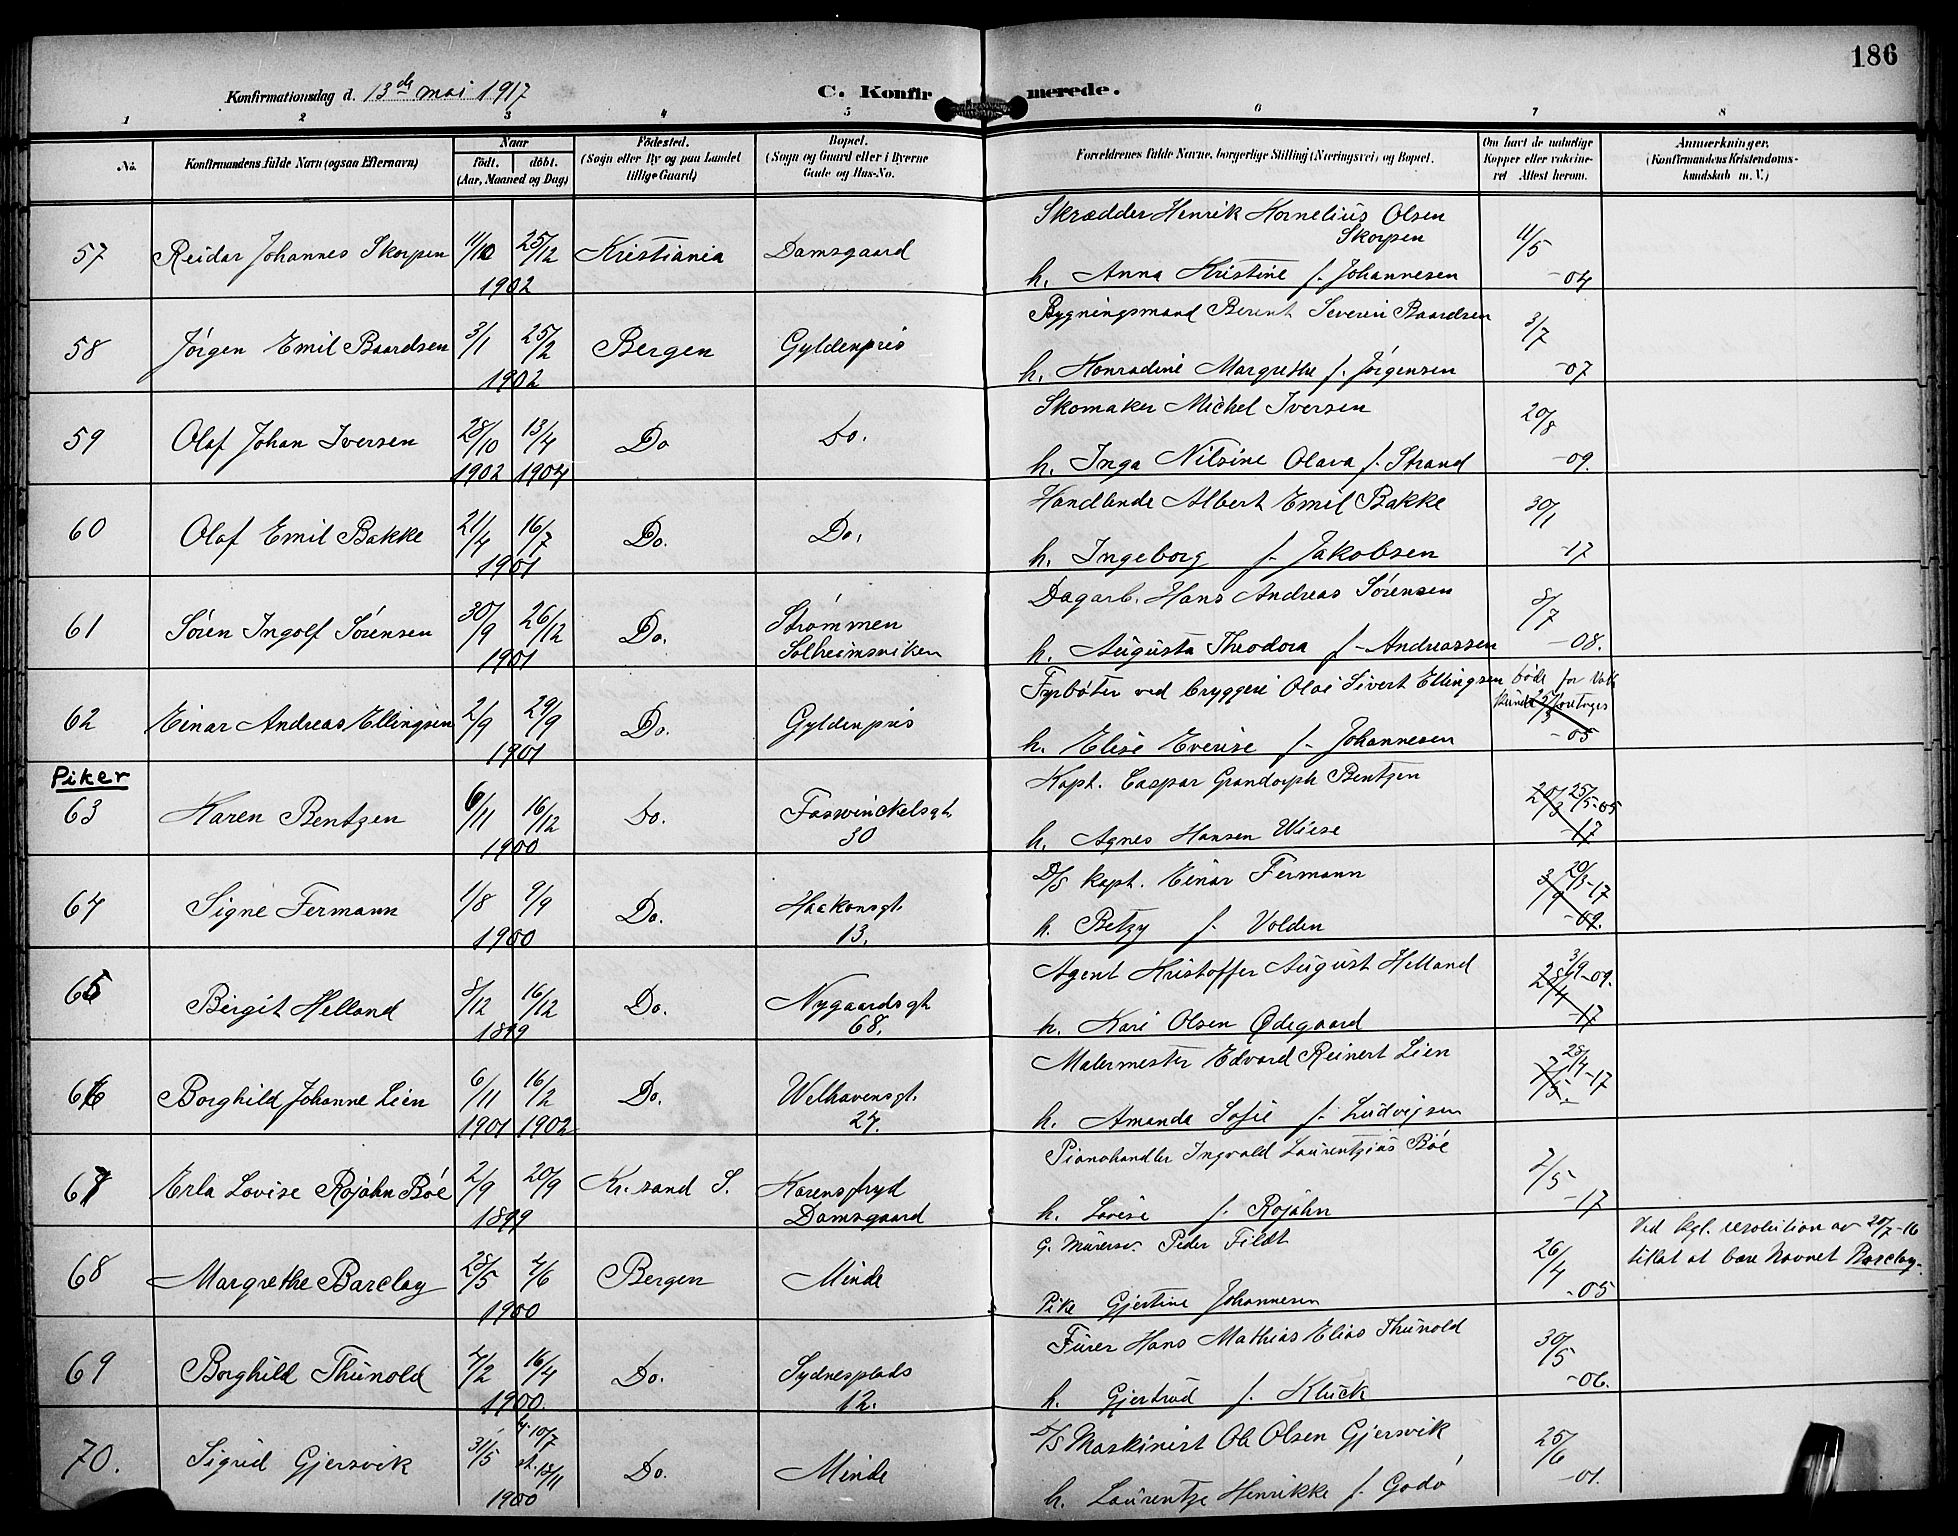 186
Konfirmationsdag d. 13de mai 1917
C. Konfirmerede.
1 2 3 4 5 6 7 8
No. Konfirmandens fulde Navn (ogsaa Efternavn) Naar födt. döbt. (Aar, Maaned og Dag) Födested. (Sogn eller By og paa Landet tillige Gaard) Bopæl. (Sogn og Gaard eller i Byerne Gade og Hus-No. Forældrenes fulde Navne, borgerlige Stilling (Næringsvei) og Bopæl. Om havt de naturlige Kopper eller vaccineret Attest herom. Anmærkninger. (Konfirmandens Kristendomskundskab m. V.)
57 Reidar Johannes Skorpen 11/10 25/12 1902 Kristiania Damsgaard Skrædder Henrik Kornelius Olsen Skorpen
h. Anna Kristine f. Johannesen 11/5 -04
58 Jörgen Emil Baardsen 3/1 25/2 1902 Bergen Gyldenpris Bygningsmand Berent Severin Baardsen
h. Konradine Margrethe f. Jörgensen 3/7 -07
59 Olaf Johan Iversen 28/10 1902 13/4 1904 Do Do. Skomaker Michel Iversen
h. Inga Nilsine Olava f. Strand 20/8 -09.
60 Olaf Emil Bakke 21/4 16/7 1901 Do. Do. Handlende Albert Emil Bakke
h. Ingeborg f. Jakobsen 30/1 -17
61 Sören Ingolf Sörensen 30/9 26/12 1901 Do. Strömmen Solheimsviken Dagarb. Hans Andreas Sörensen
h. Augusta Theodora f. Andreassen 8/7 -08.
62 Einar Andreas Ellingsen 2/9 29/9 1901 Do. Gyldenpris Fyrböter ved bryggeri Olai Sivert Ellingsen
h. Elise Everise f. Johannesen böde for -05
Piker
63 Karen Bentzen 6/11 16/12 1900 Do. Fosswinckelsgt. 30 Kapt. Caspar Grandorph Bentzen
h. Agnes Hansen Wiese 20/3 -17 25/5-05
64 Signe Fermann 1/8 9/9 1900 Do. Haakonsgt. 13. D/S kapt. Einar Fermann
h. Betzy f. Volden 3/9 -09. 20/3-17
65 Birgit Helland 8/12 16/12 1899 Do. Nygaardsgt. 68. Agent Kristoffer August Helland
h. Kari Olsen Ødegaard 28/4 -17 3/9-09.
66 Borghild Johanne Lien 6/11 1901 16/2 1902 Do. Welhavensgt. 27. Malermester Edvard Reinert Lien
h. Amanda Sofie f. Ludvigsen 7/5. 28/4-17
67 Erla Lovise Rojahn Böe 2/9 20/9 1899 Kr.sand S. Karensfryd Damsgaard Pianohandler Ingvald Laurentzius Böe
h. Lovise f. Rojahn 7/5 -17
68 Margrethe Barclay 28/5 4/6 1900 Bergen Minde G. Murersv. Peder Fildt
Pike Gjertine Johannesen 26/4 -05 Ved kgl. resolution av 20/7-16 tillat at bære Navnet Barclay.
69 Borghild Thunold 4/2 16/4 1900. Do. Sydnesplads 12. Furer Hans Mathias Elias Thunold
h. Gjertrud f. Kluck 30/5 -06.
70. Sigrid Gjersvik 31/5 hj. 10/7 st. 18/11 1900 Do. Minde D/S Maskinist Ole Olsen Gjersvik
h. Laurentze Henrikke f. Godö 25/6 -01.